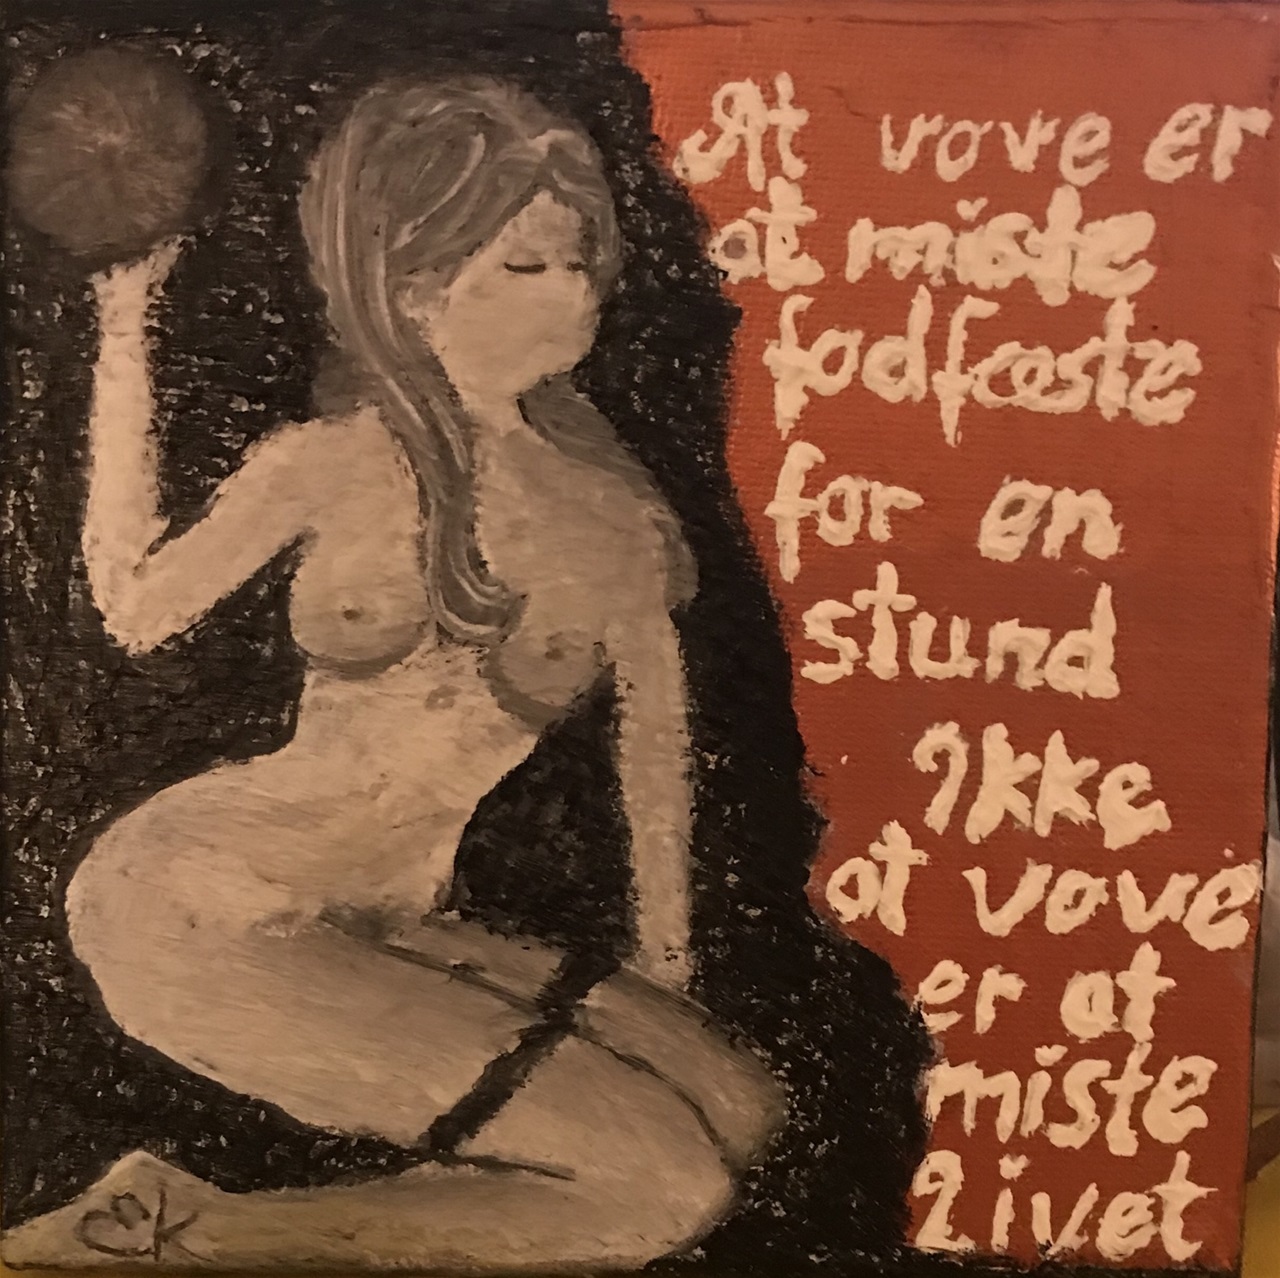 At vove er
at miste
fodfæste
for en
stund
Ikke
at vove
er at
miste
Livet